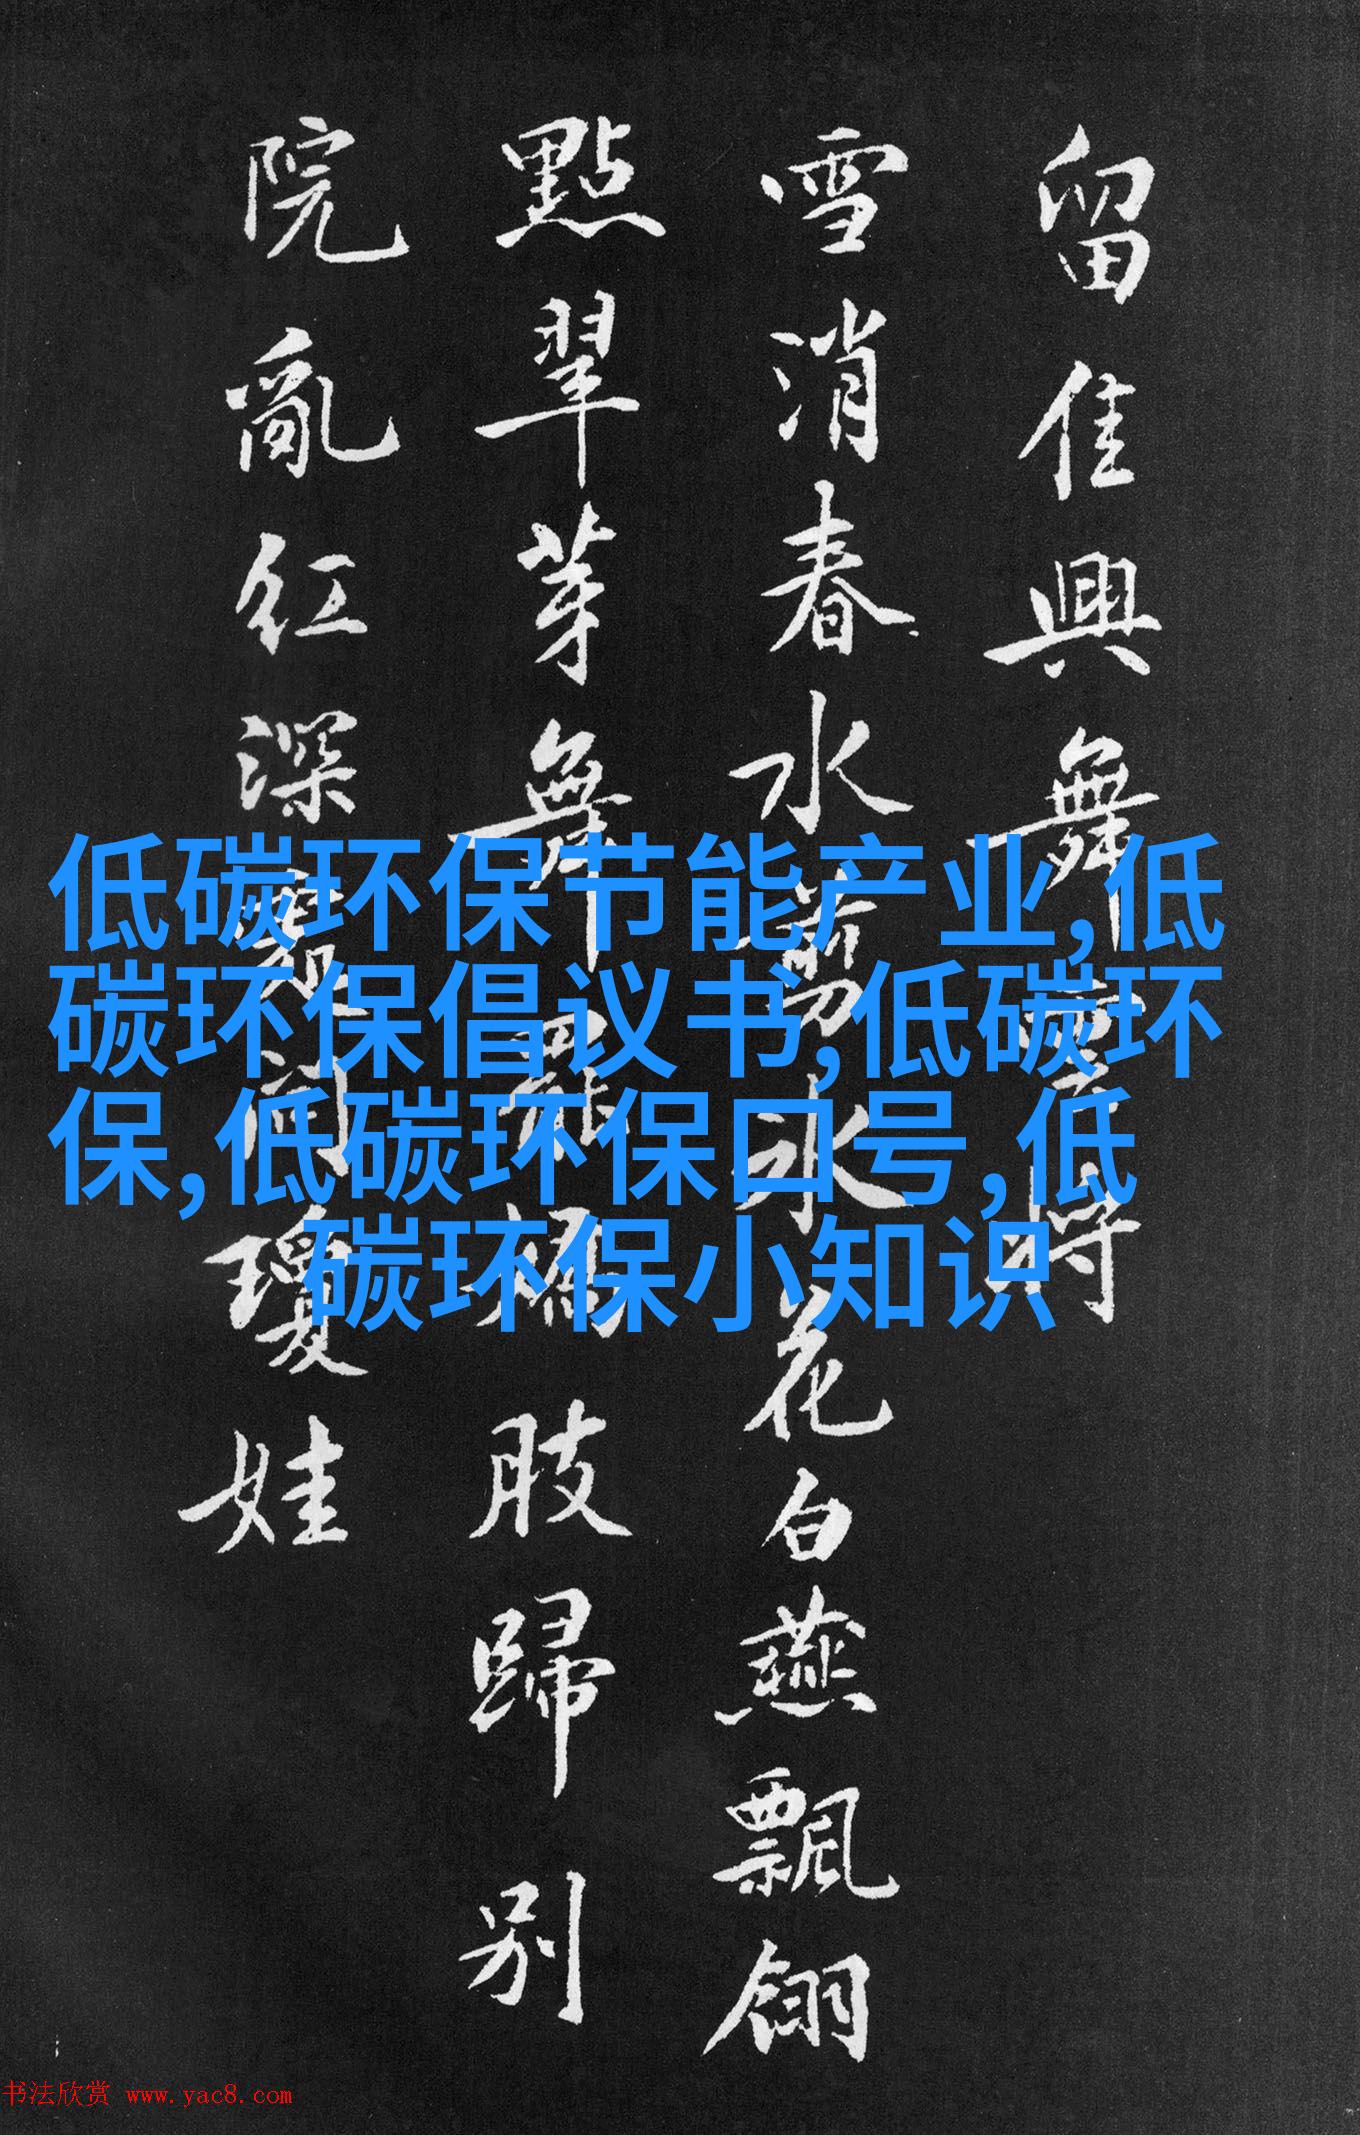 留佳興舞將
雪消春水氷花白燕飄翎
點翠芽舞罷嬌肢歸别
院亂紅深瓊娃
低碳环保节能产业,低
碳环保倡议书,低碳环
保,低碳环保口号,低
碳环保小知识
书法欣赏 www.yac8.com